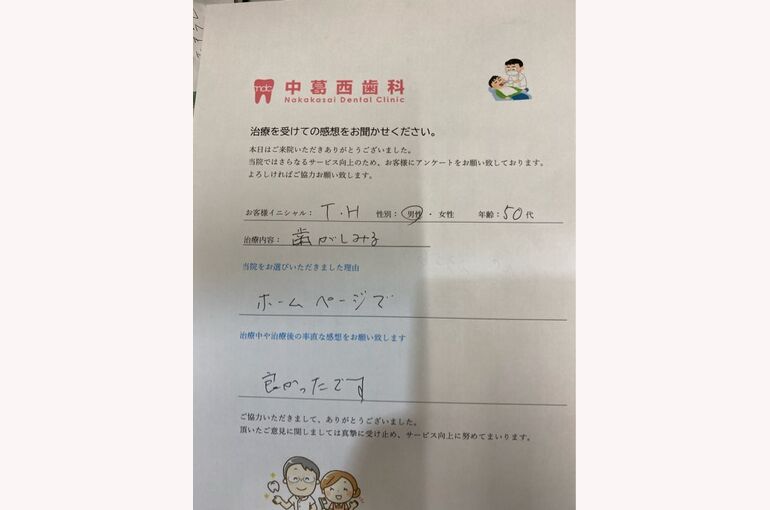 mdc
中葛西歯科
Nakakasai Dental Clinic
治療を受けての感想をお聞かせください。
本日はご来院いただきありがとうございました。
当院ではさらなるサービス向上のため、お客様にアンケートをお願い致しております。
よろしければご協力お願い致します。
お客様イニシャル： T・H 性別： 男性 ・ 女性 年齢： 50 代
治療内容： 歯がしみる
当院をお選びいただきました理由
ホームページで
治療中や治療後の率直な感想をお願い致します
良かったです
ご協力いただきまして、ありがとうございました。
頂いたご意見に関しましては真摯に受け止め、サービス向上に努めてまいります。